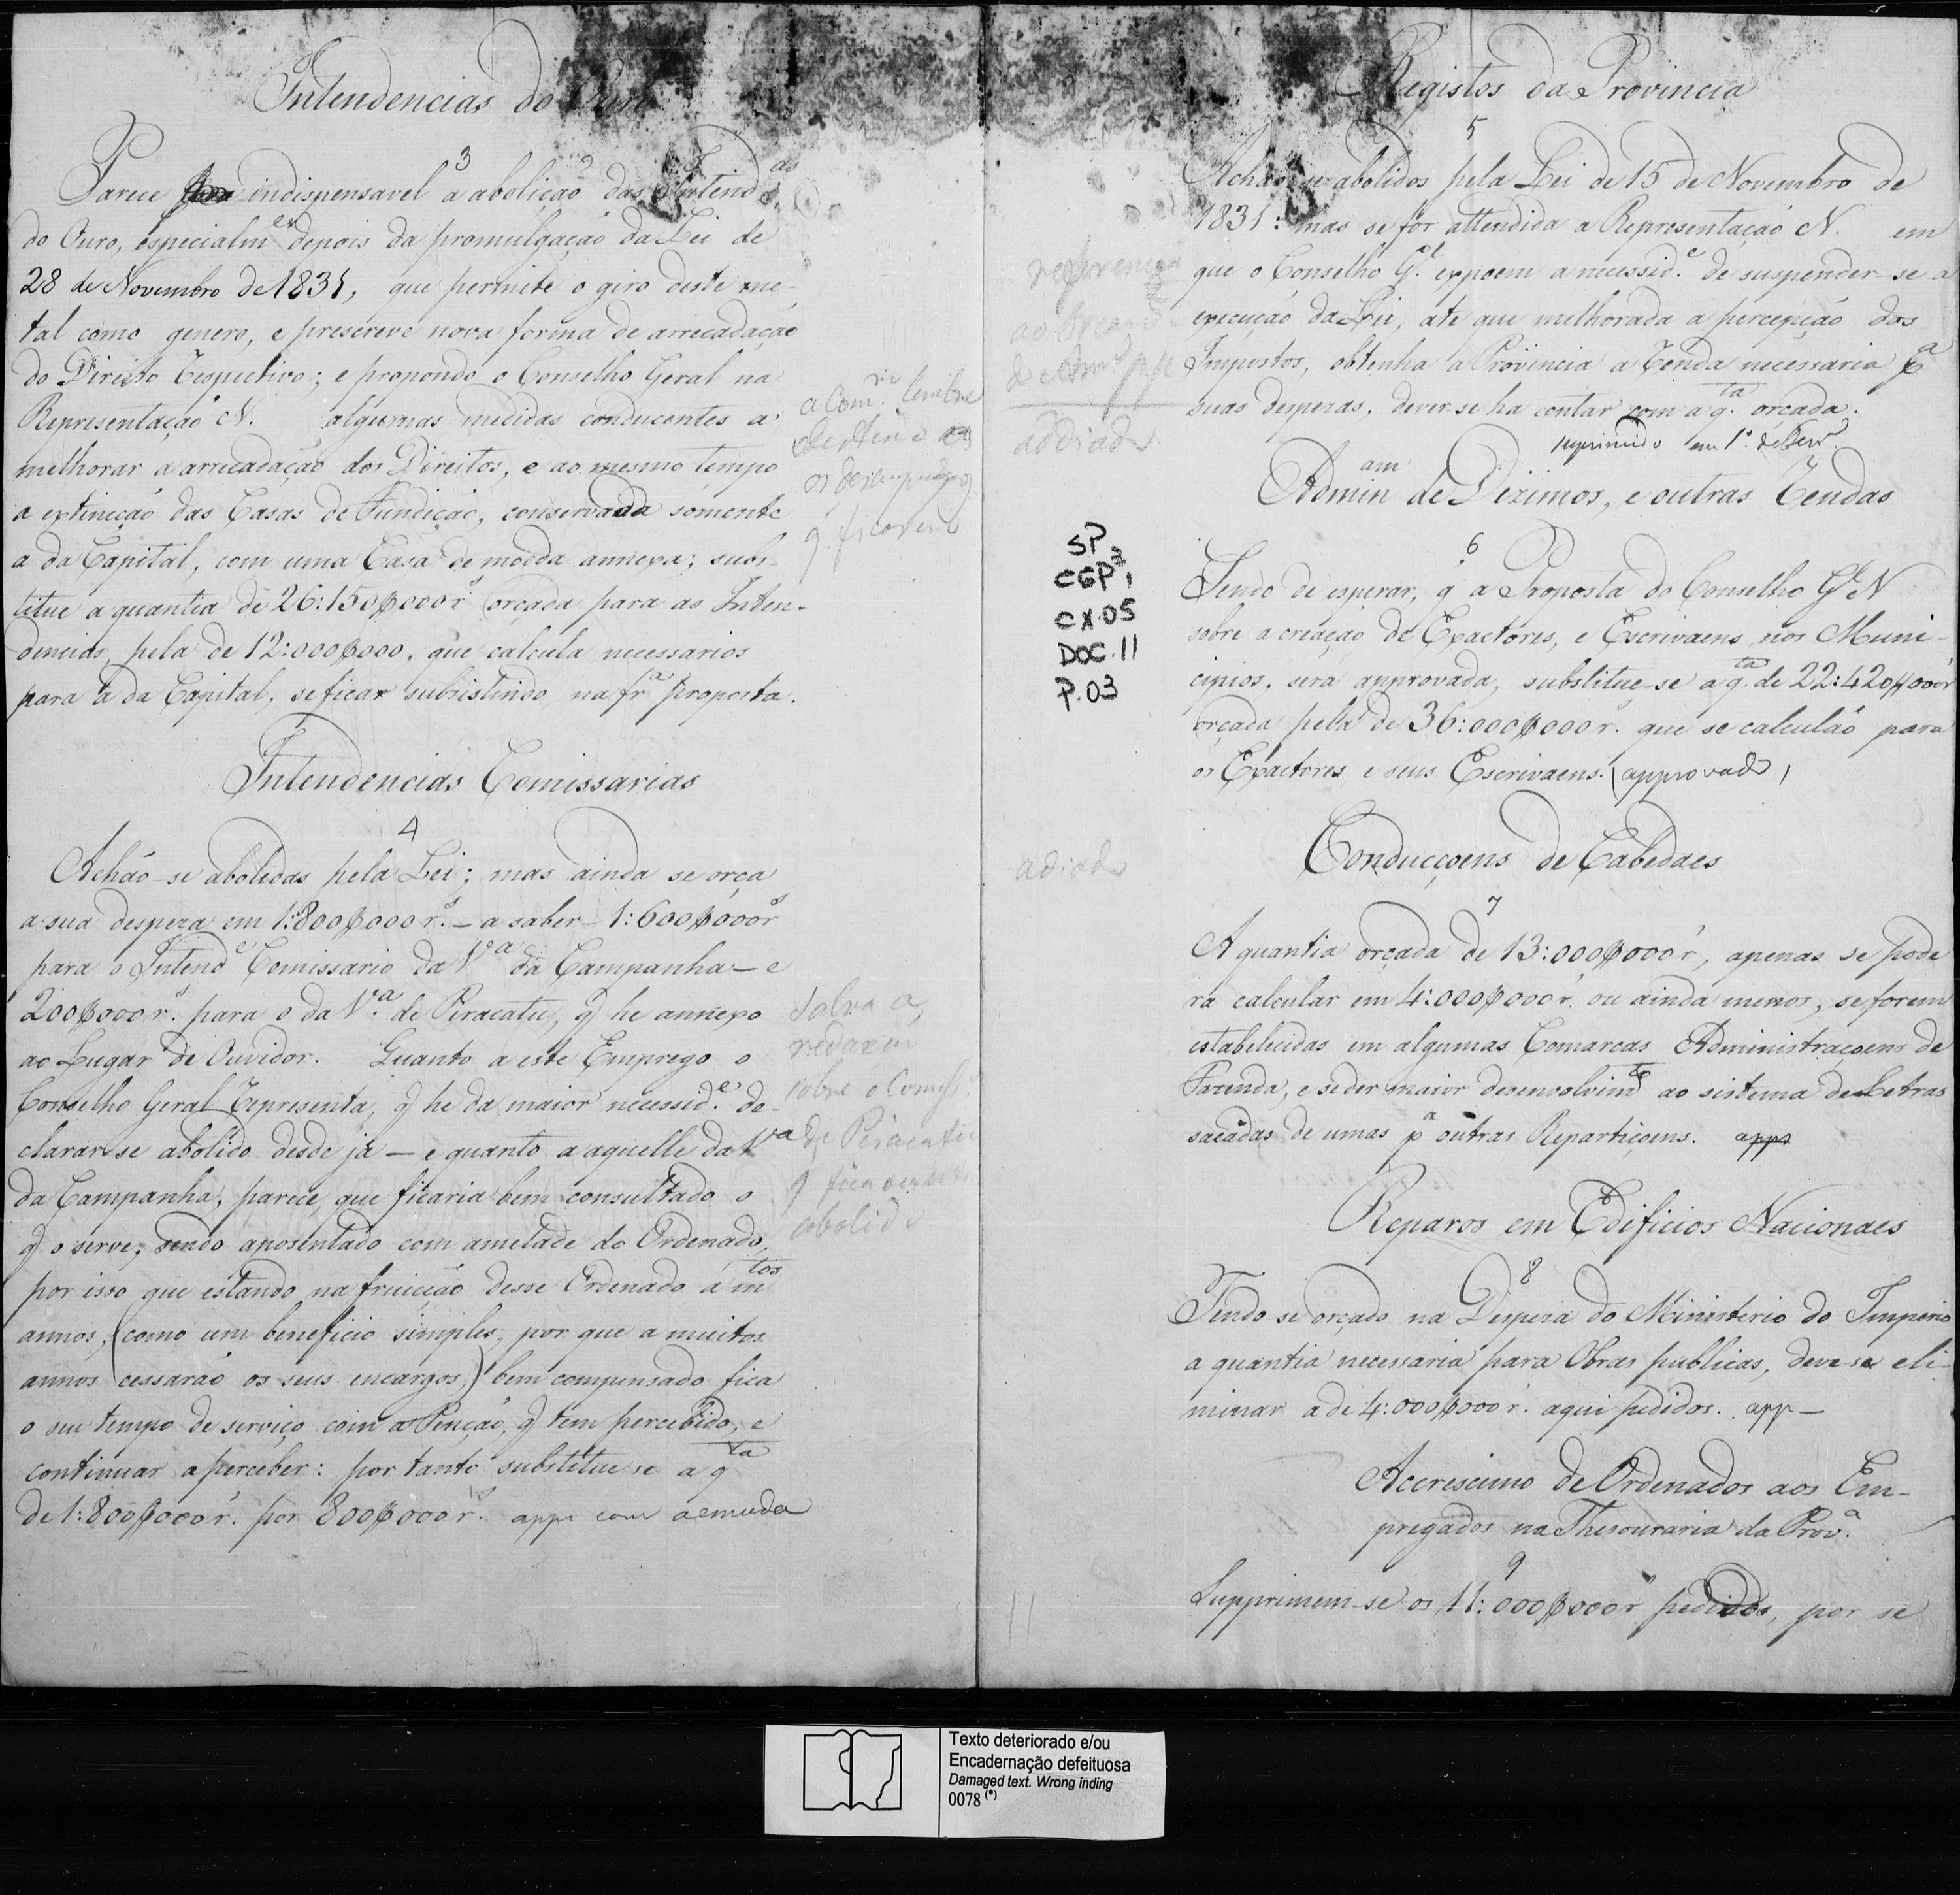 Intendencias do Ouro
3
Parece indispensavel a abolição das Intend.as
do Ouro, especialm.e depois da promulgação da Lei de
28 de Novembro de 1831, que permite o giro deste me-
tal como genero, e prescreve nova forma de arrecadação
do Direito respectivo; e propondo o Conselho Geral na
Representação N. algumas medidas conducentes a
melhorar a arrecadação dos Direitos, e ao mesmo tempo
a extincção das Casas de Fundição, conservada somente
a da Capital, com uma Casa de moeda annexa; subs-
titue a quantia de 26:150$000 r.s orçada para as Inten-
dencias, pela de 12:000$000, que calcula necessarios
para a da Capital, se ficar subsistindo na fr.a proposta.
a Com.m lembre
os desempregos
q. ficarem
Intendencias Comissarias
4
Achão-se abolidas pela Lei; mas ainda se orça
a sua despeza em 1:800$000 r.s – a saber – 1:600$000 r.s
para o Intend.e Comissario da V.a da Campanha – e
200$000 r.s para o da V.a de Piracatu, q he annexo
ao Lugar de Ouvidor. Quanto a este Emprego o
Conselho Geral representa, q he da maior necessid.e de-
clarar-se abolido desde já – e quanto a aquelle da V.a
da Campanha, parece, que ficaria bem consultado o
q o serve, sendo aposentado com ametade do Ordenado,
por isso que estando na fruicção desse Ordenado á m.tos
annos, (como um beneficio simples, por que a muitos
annos cessarão os seus encargos,) bem compensado fica
o seu tempo de serviço com a Penção, q tem percebido, e
continuar a perceber: por tanto substitue se a q.ta
de 1:800$000 r.s por 800$000 r.s app com a emenda
Salva a
redação
sobre o Comiss.
de Piracatu
q fica
abolido
Registos da Provincia
5
Achão-se abolidos pela Lei de 15 de Novembro de
1831: mas se fôr attendida a Representação N. em
que o Conselho G.al expoem a necessid.e de suspender-se a
execução da Lei, até que melhorada a percepção dos
Impostos, obtenha a Provincia a renda necessaria p.a
suas despezas, dever-se ha contar com a q.ta orçada.
suprimido em 1.º de Fevr.
addiado
Admin.am de Dizimos, e outras rendas
6
Sendo de esperar, q a Proposta do Conselho G.al N
sobre a creação de Exactores, e Escrivaens nos Muni-
cipios, será approvada, substitue-se a q.ta de 22:420$000 r
orçada pela de 36:000$000 r. que se calculão para
os Exactores e seus Escrivaens. (approvado)
SP
CGP3,
CX.05
DOC.11
P.03
Conducçoens de Cabedaes
adiado
7
A quantia orçada de 13:000$000 r, apenas se pode
rá calcular em 4:000$000 r. ou ainda menos, se forem
estabelecidas em algumas Comarcas Administraçoens de
Fazenda, e se der maior desenvolvim.to ao sistema de Letras
sacadas de umas p.a outras Repartiçoens. app
Reparos em Edificios Nacionaes
8
Tendo se orçado na Despeza do Ministerio do Imperio
a quantia necessaria para Obras publicas, deve-se eli-
minar a de 4:000$000 r. aqui pedidos. app –
Accrescimo de Ordenados aos Em-
pregados na Thesouraria da Prov.a
9
Supprimem-se os 11:000$000 r pedidos, por se
11
Texto deteriorado e/ou
Encadernação defeituosa
Damaged text. Wrong inding
0078 (*)